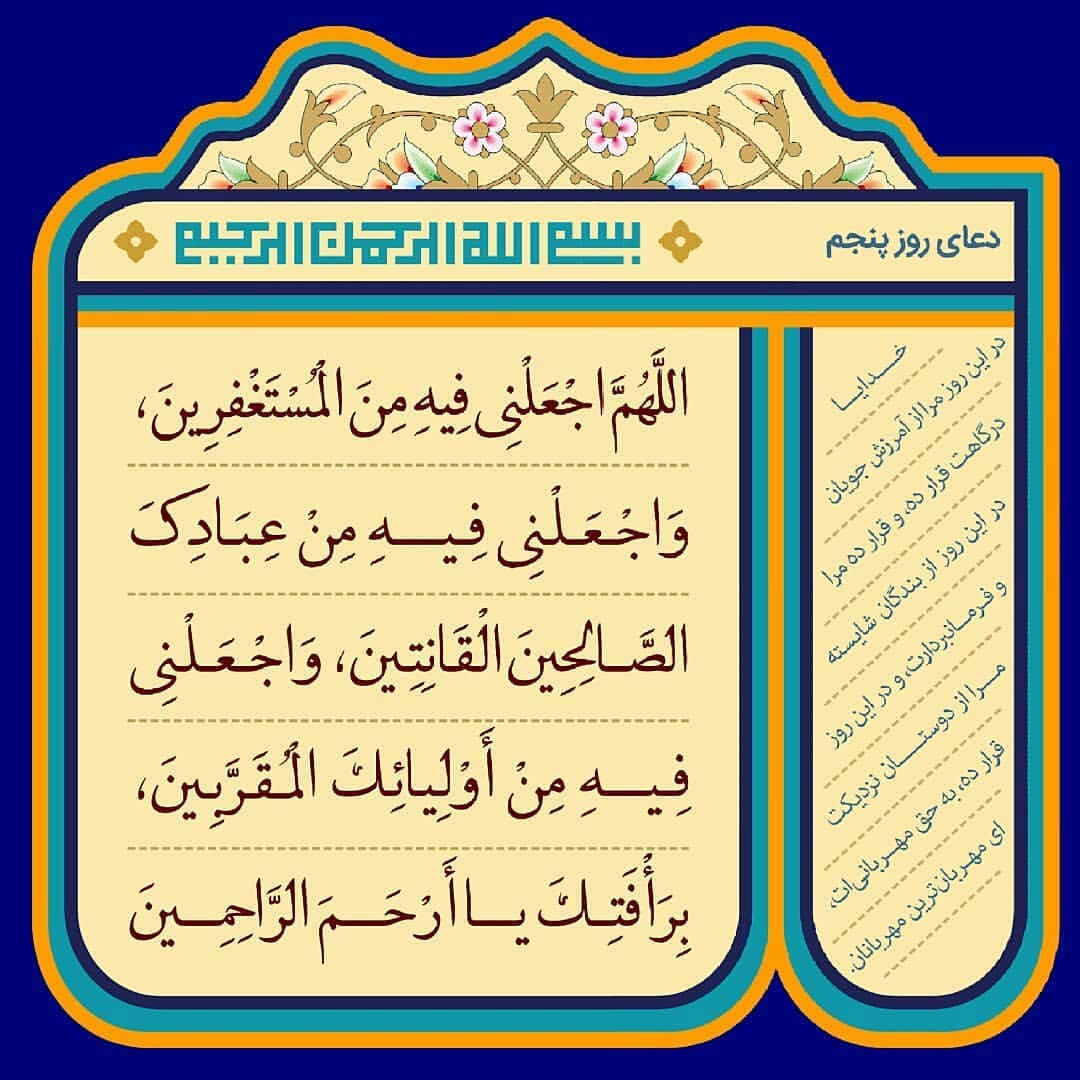 دعای روز پنجم
بسم الله الرحمن الرحیم
اللَّهُمَّ اجْعَلْنِی فِیهِ مِنَ الْمُسْتَغْفِرِینَ،
وَاجْعَلْنِی فِیهِ مِنْ عِبَادِکَ
الصَّالِحِینَ الْقَانِتِینَ، وَاجْعَلْنِی
فِیهِ مِنْ أَوْلِیائِكَ الْمُقَرَّبِینَ،
بِرَأْفَتِكَ یا أَرْحَمَ الرَّاحِمِینَ
خدایا
در این روز مرا از آمرزش جویان
درگاهت قرار ده، و قرار ده مرا
در این روز از بندگان شایسته
و فرمانبردارت، و در این روز
مرا از دوستان نزدیکت
قرار ده، به حق مهربانی‌ات،
ای مهربان‌ترین مهربانان.